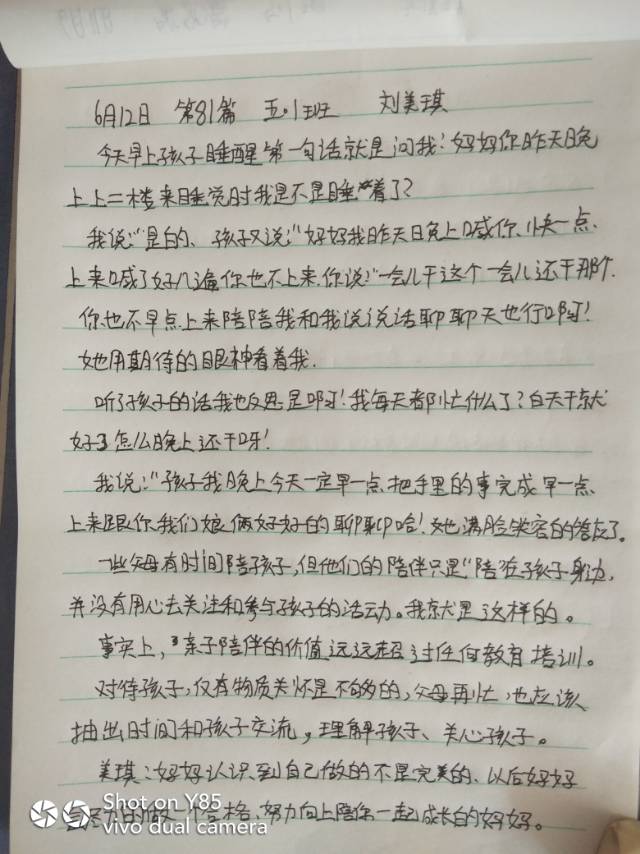 6月12日 第81篇 五.1班 刘美琪
今天早上孩子睡醒第一句话就是问我:妈妈你昨天晚
上上二楼来睡觉时我是不是睡着了?
我说:"是的、孩子又说:"妈妈我昨天日晚上喊你、快一点、
上来喊了好几遍你也不上来.你说:"一会儿干这个一会儿还干那个.
你也不早点上来陪陪我和我说说话聊聊天也行啊!
她用期待的眼神看着我.
听了孩子的话我也反思是啊!我每天都忙什么了?白天干就
好了怎么晚上还干呀!
我说:"孩子我晚上今天一定早一点把手里的事完成早一点
上来跟你我们娘俩好好的聊聊哈!她满脸笑容的答应了。
一些父母有时间陪孩子,但他们的陪伴只是"陪"在孩子身边,
并没有用心去关注和参与孩子的活动。我就是这样的。
事实上,亲子陪伴的价值远远超过任何教育培训。
对待孩子,仅有物质关怀是不够的,父母再忙,也应该
抽出时间和孩子交流,理解孩子、关心孩子。
美琪:妈妈认识到自己做的不是完美的、以后妈妈
会努力的做一个合格、努力向上陪你一起成长的妈妈。
Shot on Y85
vivo dual camera